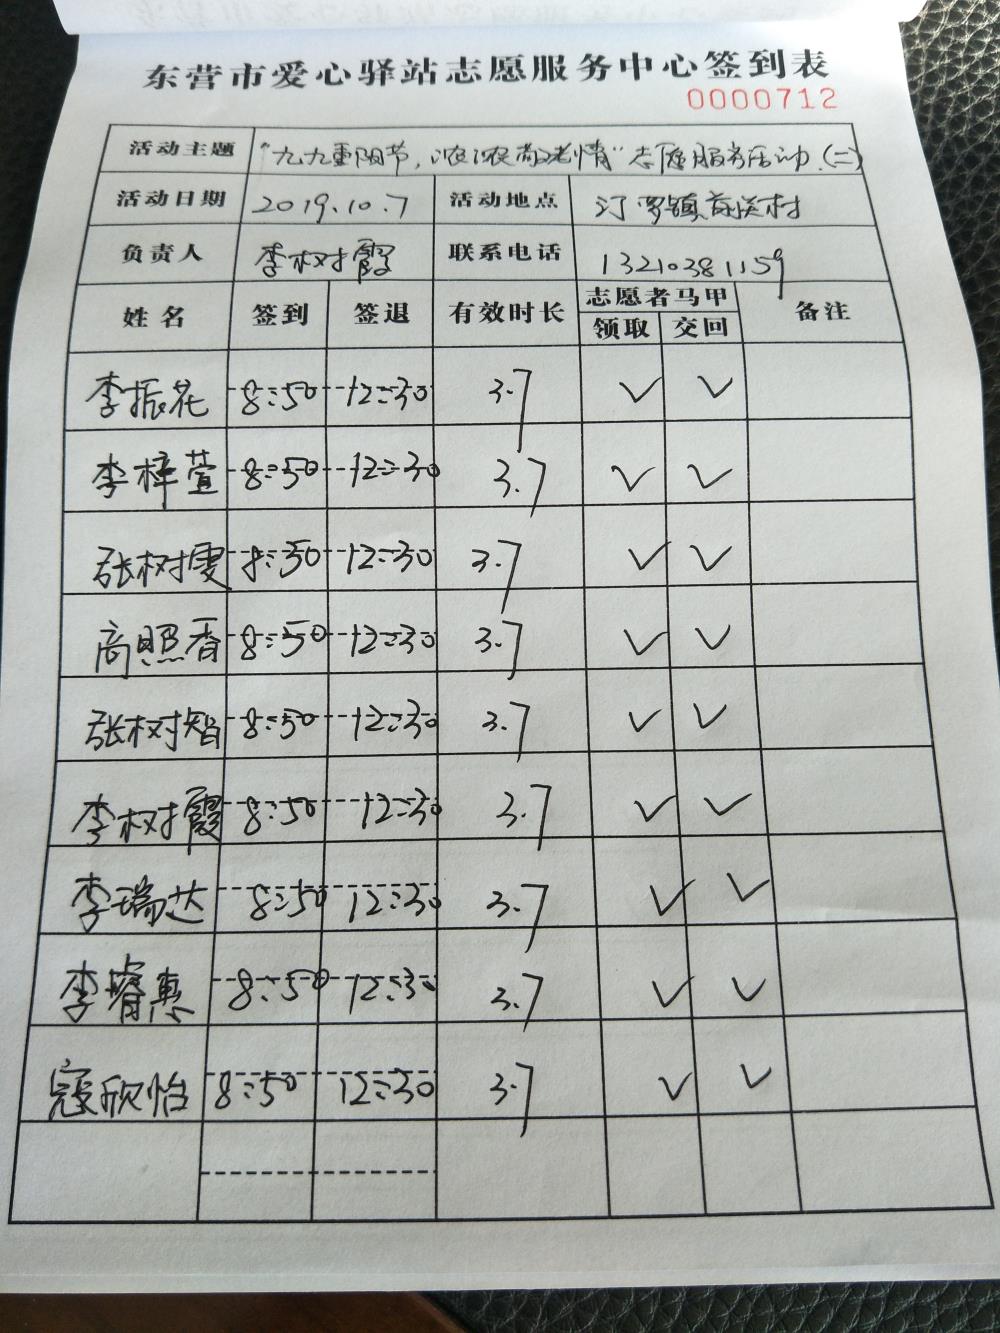 东营市爱心驿站志愿服务中心签到表
0000712
活动主题 "九九重阳节，浓浓敬老情"志愿服务活动(二)
活动日期 2019.10.7 活动地点 汀罗镇 村
负责人 李树霞 联系电话 13210381159
姓名 签到 签退 有效时长 志愿者马甲 备注
领取 交回
李振花 8:50 12:30 3.7 ✓ ✓
李梓萱 8:50 12:30 3.7 ✓ ✓
张树雯 8:50 12:30 3.7 ✓ ✓
高照香 8:50 12:30 3.7 ✓ ✓
张树智 8:50 12:30 3.7 ✓ ✓
李树霞 8:50 12:30 3.7 ✓ ✓
李瑞达 8:50 12:30 3.7 ✓ ✓
李睿惠 8:50 12:30 3.7 ✓ ✓
寇欣怡 8:50 12:30 3.7 ✓ ✓